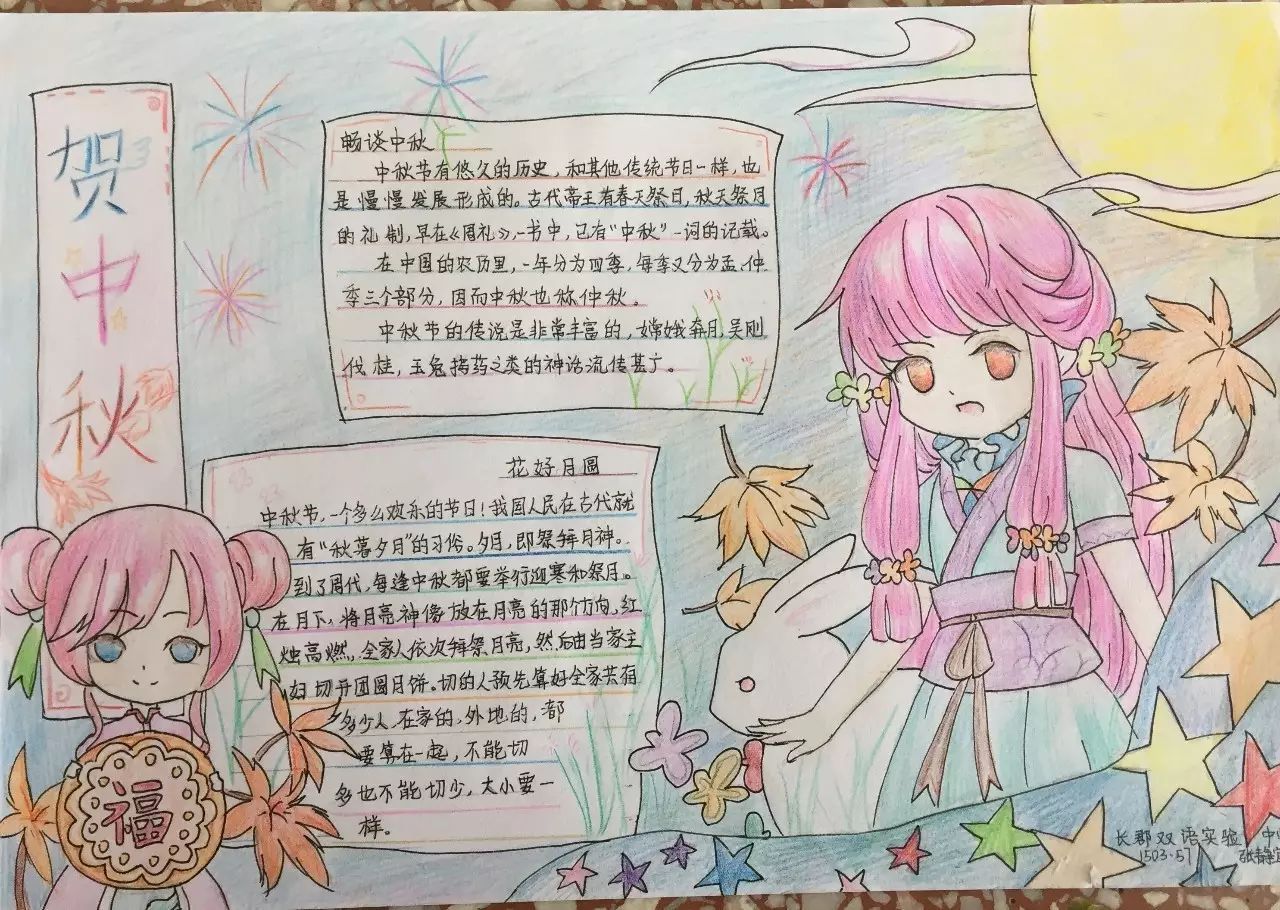 贺中秋
畅谈中秋
中秋节有悠久的历史，和其他传统节日一样，也
是慢慢发展形成的。古代帝王有春天祭日，秋天祭月
的礼制，早在《周礼》一书中，已有“中秋”一词的记载。
在中国的农历里，一年分为四季，每季又分为孟、仲
季三个部分，因而中秋也称仲秋。
中秋节的传说是非常丰富的，嫦娥奔月，吴刚
伐桂，玉兔捣药之类的神话流传甚广。
花好月圆
中秋节，一个多么欢乐的节日！我国人民在古代就
有“秋暮夕月”的习俗。夕月，即祭拜月神。
到了周代，每逢中秋都要举行迎寒和祭月。
在月下，将月亮神像放在月亮的那个方向，红
烛高燃，全家人依次拜祭月亮，然后由当家主
妇切开团圆月饼。切的人预先算好全家共有
多少人，在家的，外地的，都
要算在一起，不能切
多也不能切少，大小要一
样。
福
长郡双语实验中
1503.57 张静